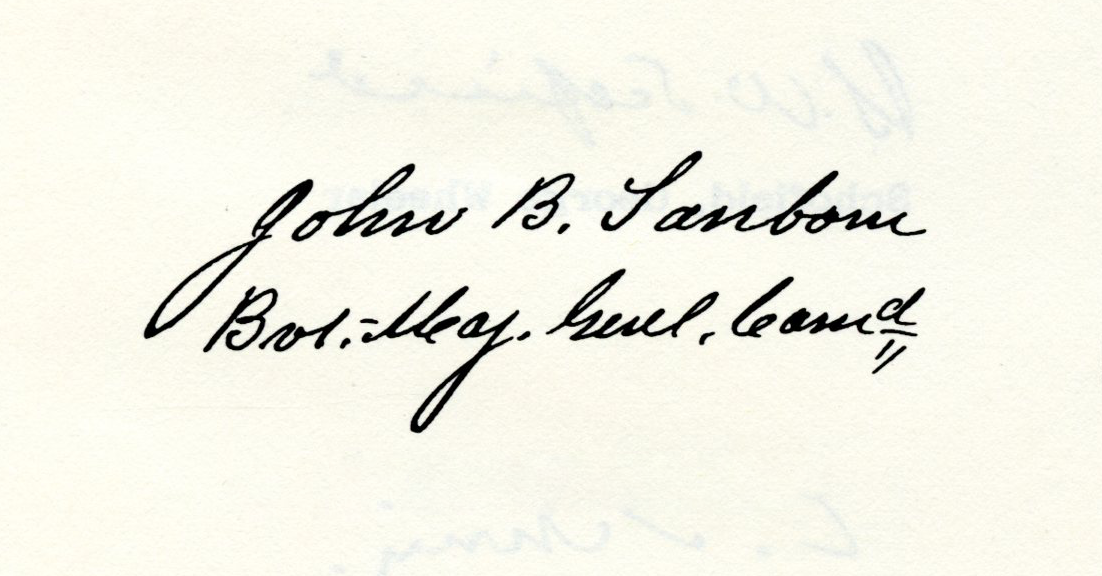 John B. Sanborn
Bvt.-Maj. Genl. Comd